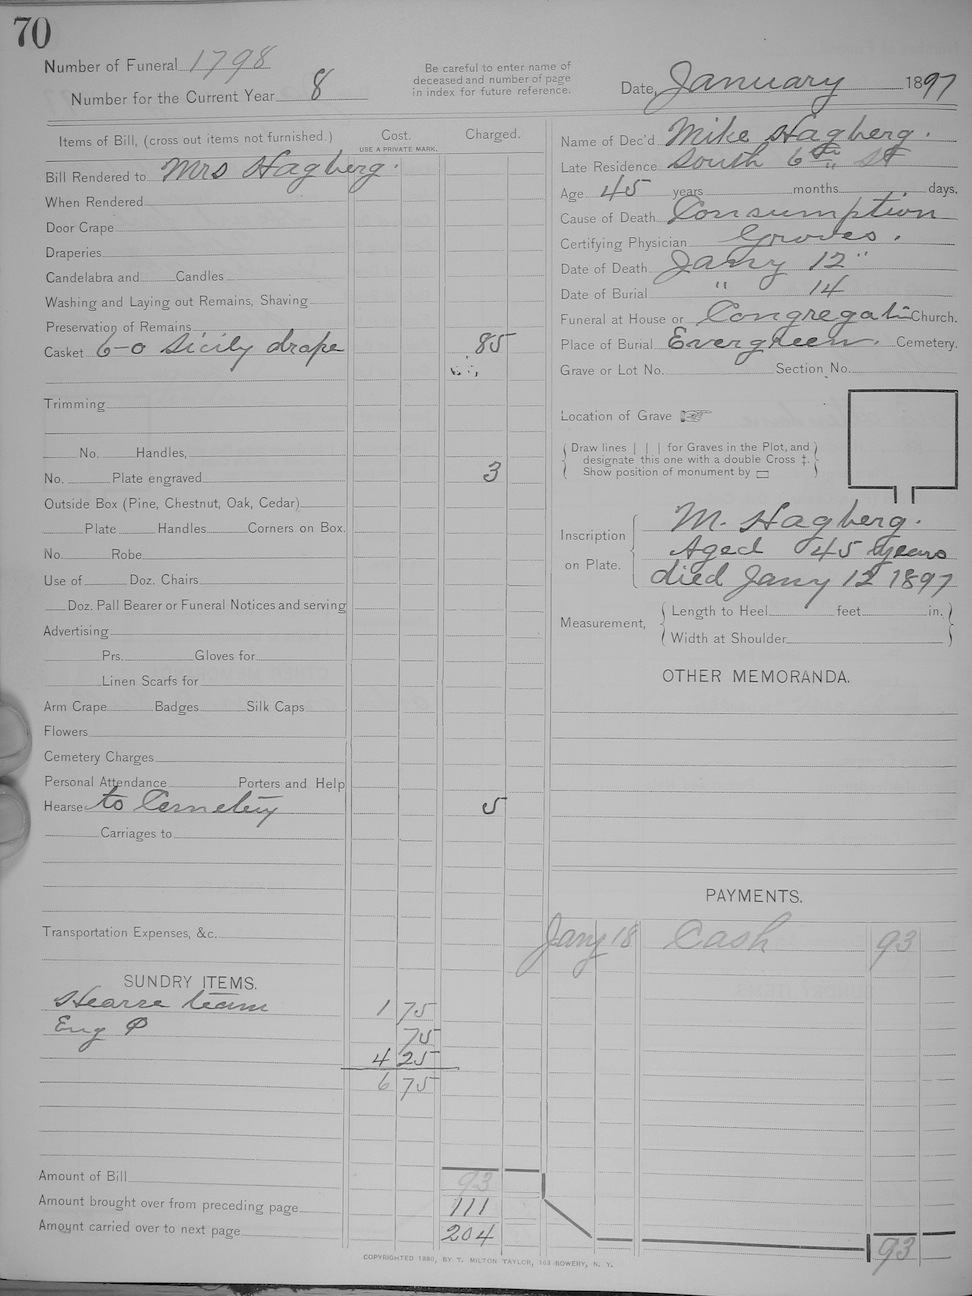 70
Number of Funeral 1798
Number for the Current Year 8
Be careful to enter name of
deceased and number of page
in index for future reference.
Date, January 1897
Items of Bill, (cross out items not furnished.) Cost. Charged.
USE A PRIVATE MARK.
Bill Rendered to Mrs Hagberg.
When Rendered
Door Crape
Draperies
Candelabra and Candles
Washing and Laying out Remains, Shaving
Preservation of Remains
Casket 6-0 Sicily drape 85
Trimming
No. Handles,
No. Plate engraved 3
Outside Box (Pine, Chestnut, Oak, Cedar)
Plate Handles Corners on Box.
No. Robe
Use of Doz. Chairs
Doz. Pall Bearer or Funeral Notices and serving
Advertising
Prs. Gloves for
Linen Scarfs for
Arm Crape Badges Silk Caps
Flowers
Cemetery Charges
Personal Attendance Porters and Help
Hearse to Cemetery 5
Carriages to
Transportation Expenses, &c.
SUNDRY ITEMS.
Hearse team 1 75
Eng P 75
4 25
6 75
Amount of Bill 93
Amount brought over from preceding page 111
Amount carried over to next page 204
Name of Dec'd Mike Hagberg.
Late Residence South 6th St
Age 45 years months days.
Cause of Death Consumption
Certifying Physician Groves.
Date of Death Jany 12"
Date of Burial " 14
Funeral at House or Congregatin Church.
Place of Burial Evergreen. Cemetery.
Grave or Lot No. Section No.
Location of Grave ☞
Draw lines | | | for Graves in the Plot, and
designate this one with a double Cross ‡.
Show position of monument by ▭
Inscription on Plate.
M. Hagberg.
Aged 45 years
died Jany 12 1897
Measurement, Length to Heel feet in.
Width at Shoulder
OTHER MEMORANDA.
PAYMENTS.
Jany 18 Cash 93
93
COPYRIGHTED 1880, BY T. MILTON TAYLOR, 163 BOWERY, N. Y.